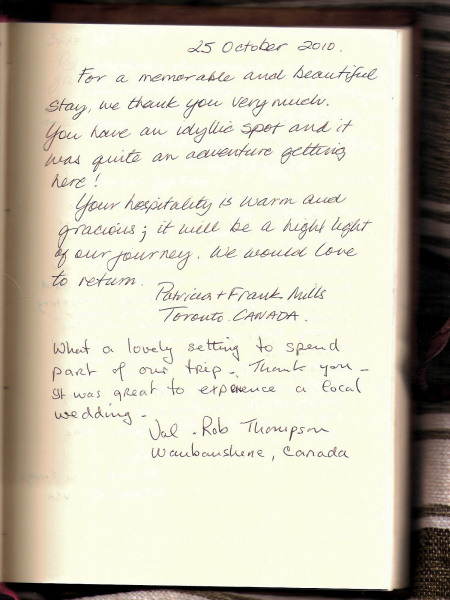 25 October 2010.
For a memorable and beautiful
stay, we thank you very much.
You have an idyllic spot and it
was quite an adventure getting
here!
Your hospitality is warm and
gracious; it will be a high light
of our journey. We would love
to return.
Patricia + Frank Mills
Toronto CANADA.
What a lovely setting to spend
part of our trip. Thank you -
It was great to experience a local
wedding -
Val - Rob Thompson
Waubaushene, Canada